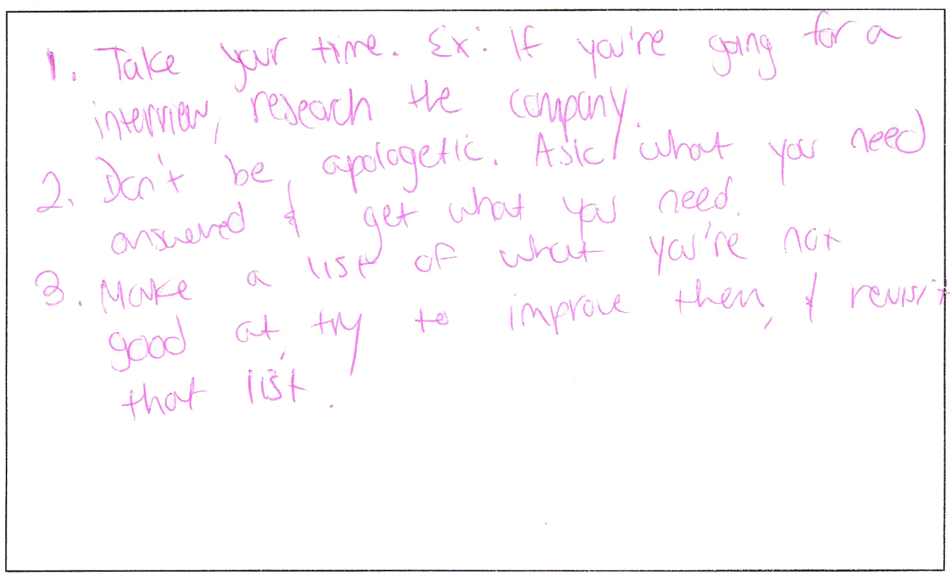 1. Take your time. Ex: If you're going for a
interview, research the company.
2. Don't be apologetic. Ask what you need
answered & get what you need.
3. Make a list of what you're not
good at, try to improve them, & revisit
that list.